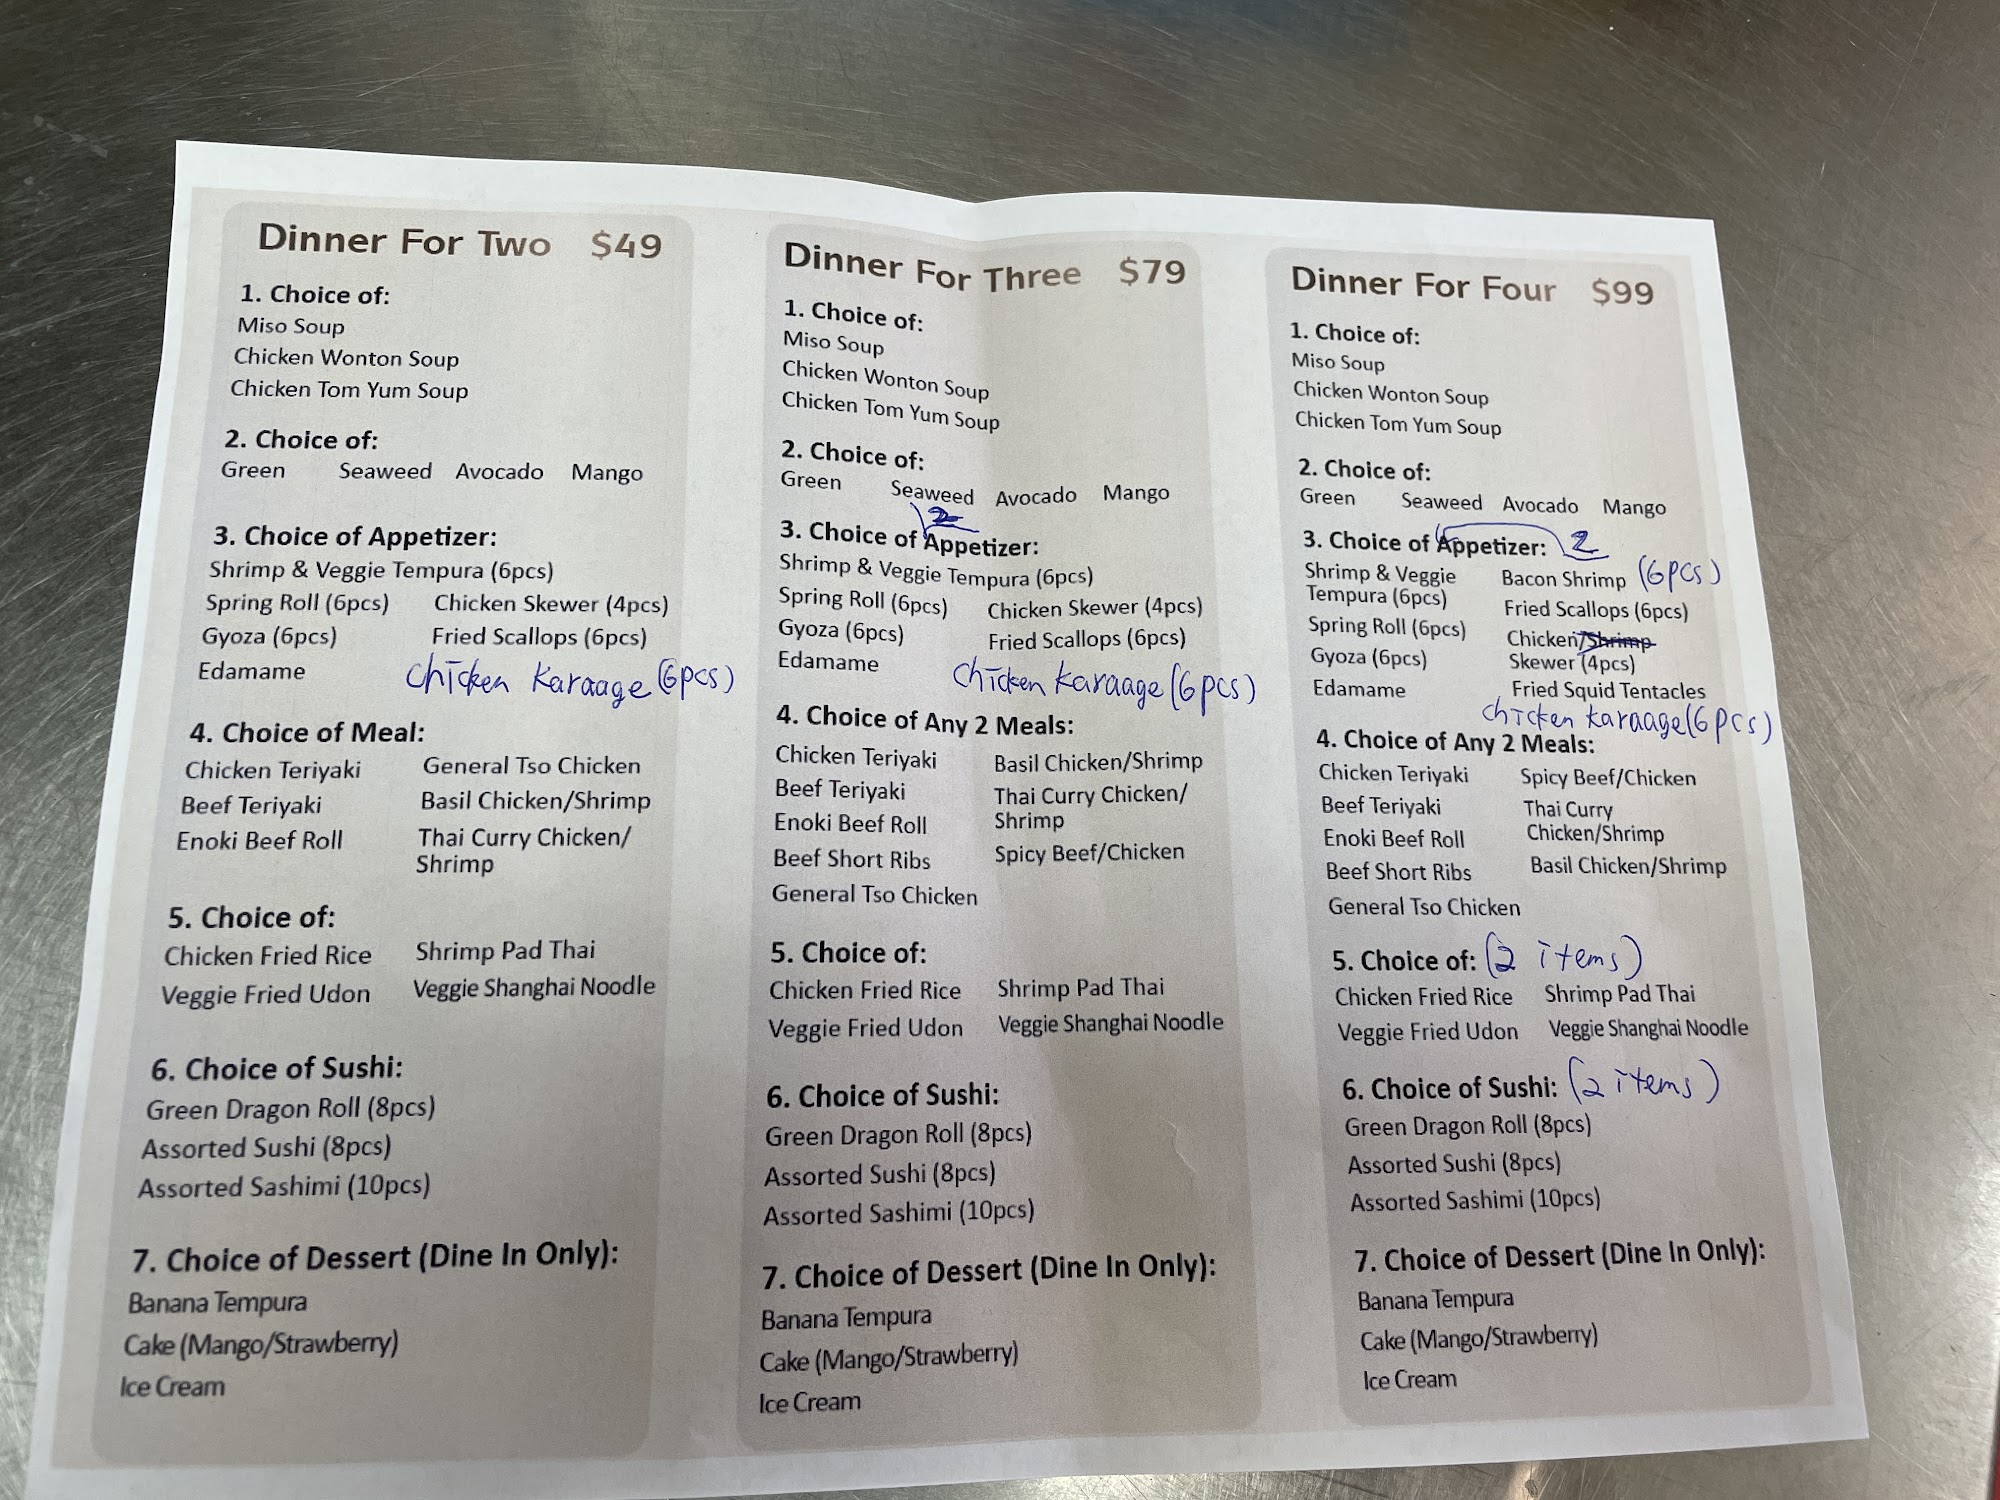 Dinner For Two $49
1. Choice of:
Miso Soup
Chicken Wonton Soup
Chicken Tom Yum Soup
2. Choice of:
Green Seaweed Avocado Mango
3. Choice of Appetizer:
Shrimp & Veggie Tempura (6pcs)
Spring Roll (6pcs) Chicken Skewer (4pcs)
Gyoza (6pcs) Fried Scallops (6pcs)
Edamame chicken karaage (6pcs)
4. Choice of Meal:
Chicken Teriyaki General Tso Chicken
Beef Teriyaki Basil Chicken/Shrimp
Enoki Beef Roll Thai Curry Chicken/
Shrimp
5. Choice of:
Chicken Fried Rice Shrimp Pad Thai
Veggie Fried Udon Veggie Shanghai Noodle
6. Choice of Sushi:
Green Dragon Roll (8pcs)
Assorted Sushi (8pcs)
Assorted Sashimi (10pcs)
7. Choice of Dessert (Dine In Only):
Banana Tempura
Cake (Mango/Strawberry)
Ice Cream
Dinner For Three $79
1. Choice of:
Miso Soup
Chicken Wonton Soup
Chicken Tom Yum Soup
2. Choice of:
Green Seaweed Avocado Mango
2
3. Choice of Appetizer:
Shrimp & Veggie Tempura (6pcs)
Spring Roll (6pcs) Chicken Skewer (4pcs)
Gyoza (6pcs) Fried Scallops (6pcs)
Edamame chicken karaage (6pcs)
4. Choice of Any 2 Meals:
Chicken Teriyaki Basil Chicken/Shrimp
Beef Teriyaki Thai Curry Chicken/
Enoki Beef Roll Shrimp
Beef Short Ribs Spicy Beef/Chicken
General Tso Chicken
5. Choice of:
Chicken Fried Rice Shrimp Pad Thai
Veggie Fried Udon Veggie Shanghai Noodle
6. Choice of Sushi:
Green Dragon Roll (8pcs)
Assorted Sushi (8pcs)
Assorted Sashimi (10pcs)
7. Choice of Dessert (Dine In Only):
Banana Tempura
Cake (Mango/Strawberry)
Ice Cream
Dinner For Four $99
1. Choice of:
Miso Soup
Chicken Wonton Soup
Chicken Tom Yum Soup
2. Choice of:
Green Seaweed Avocado Mango
3. Choice of Appetizer: 2
Shrimp & Veggie Bacon Shrimp (6pcs)
Tempura (6pcs) Fried Scallops (6pcs)
Spring Roll (6pcs) Chicken/Shrimp
Gyoza (6pcs) Skewer (4pcs)
Edamame Fried Squid Tentacles
chicken karaage (6pcs)
4. Choice of Any 2 Meals:
Chicken Teriyaki Spicy Beef/Chicken
Beef Teriyaki Thai Curry
Enoki Beef Roll Chicken/Shrimp
Beef Short Ribs Basil Chicken/Shrimp
General Tso Chicken
5. Choice of: (2 items)
Chicken Fried Rice Shrimp Pad Thai
Veggie Fried Udon Veggie Shanghai Noodle
6. Choice of Sushi: (2 items)
Green Dragon Roll (8pcs)
Assorted Sushi (8pcs)
Assorted Sashimi (10pcs)
7. Choice of Dessert (Dine In Only):
Banana Tempura
Cake (Mango/Strawberry)
Ice Cream